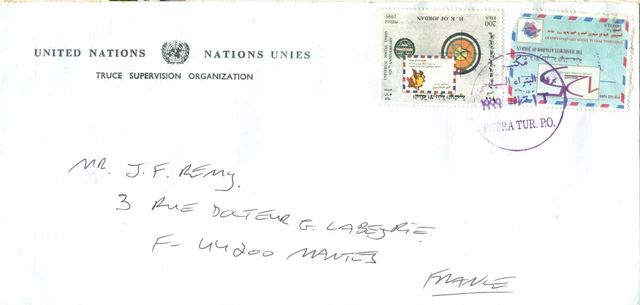 UNITED NATIONS NATIONS UNIES
TRUCE SUPERVISION ORGANIZATION
H. K. OF JORDAN
200
FILS
1999
PETRA TUR. P.O.
MR. J. F. REMY.
3 RUE DOCTEUR G. LABEYRIE
F- 44200 NANTES
FRANCE